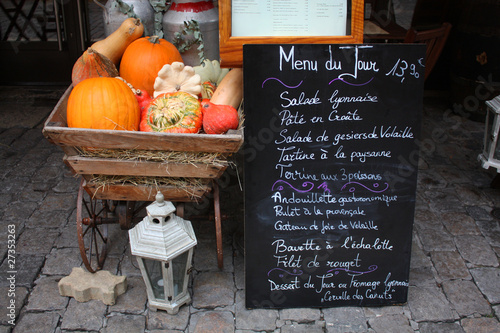 Menu du Jour 13,90€
Salade lyonnaise
Pâté en Croûte
Salade de gesiers de Volaille
Tartine à la paysanne
Terrine aux 3 poissons
Andouillette gastronomique
Poulet à la provençale
Gâteau de foie de Volaille
Bavette à l'échalotte
Filet de rouget
Dessert du Jour ou Fromage lyonnais
"Cervelle des Canuts"
fotolia
#27353263